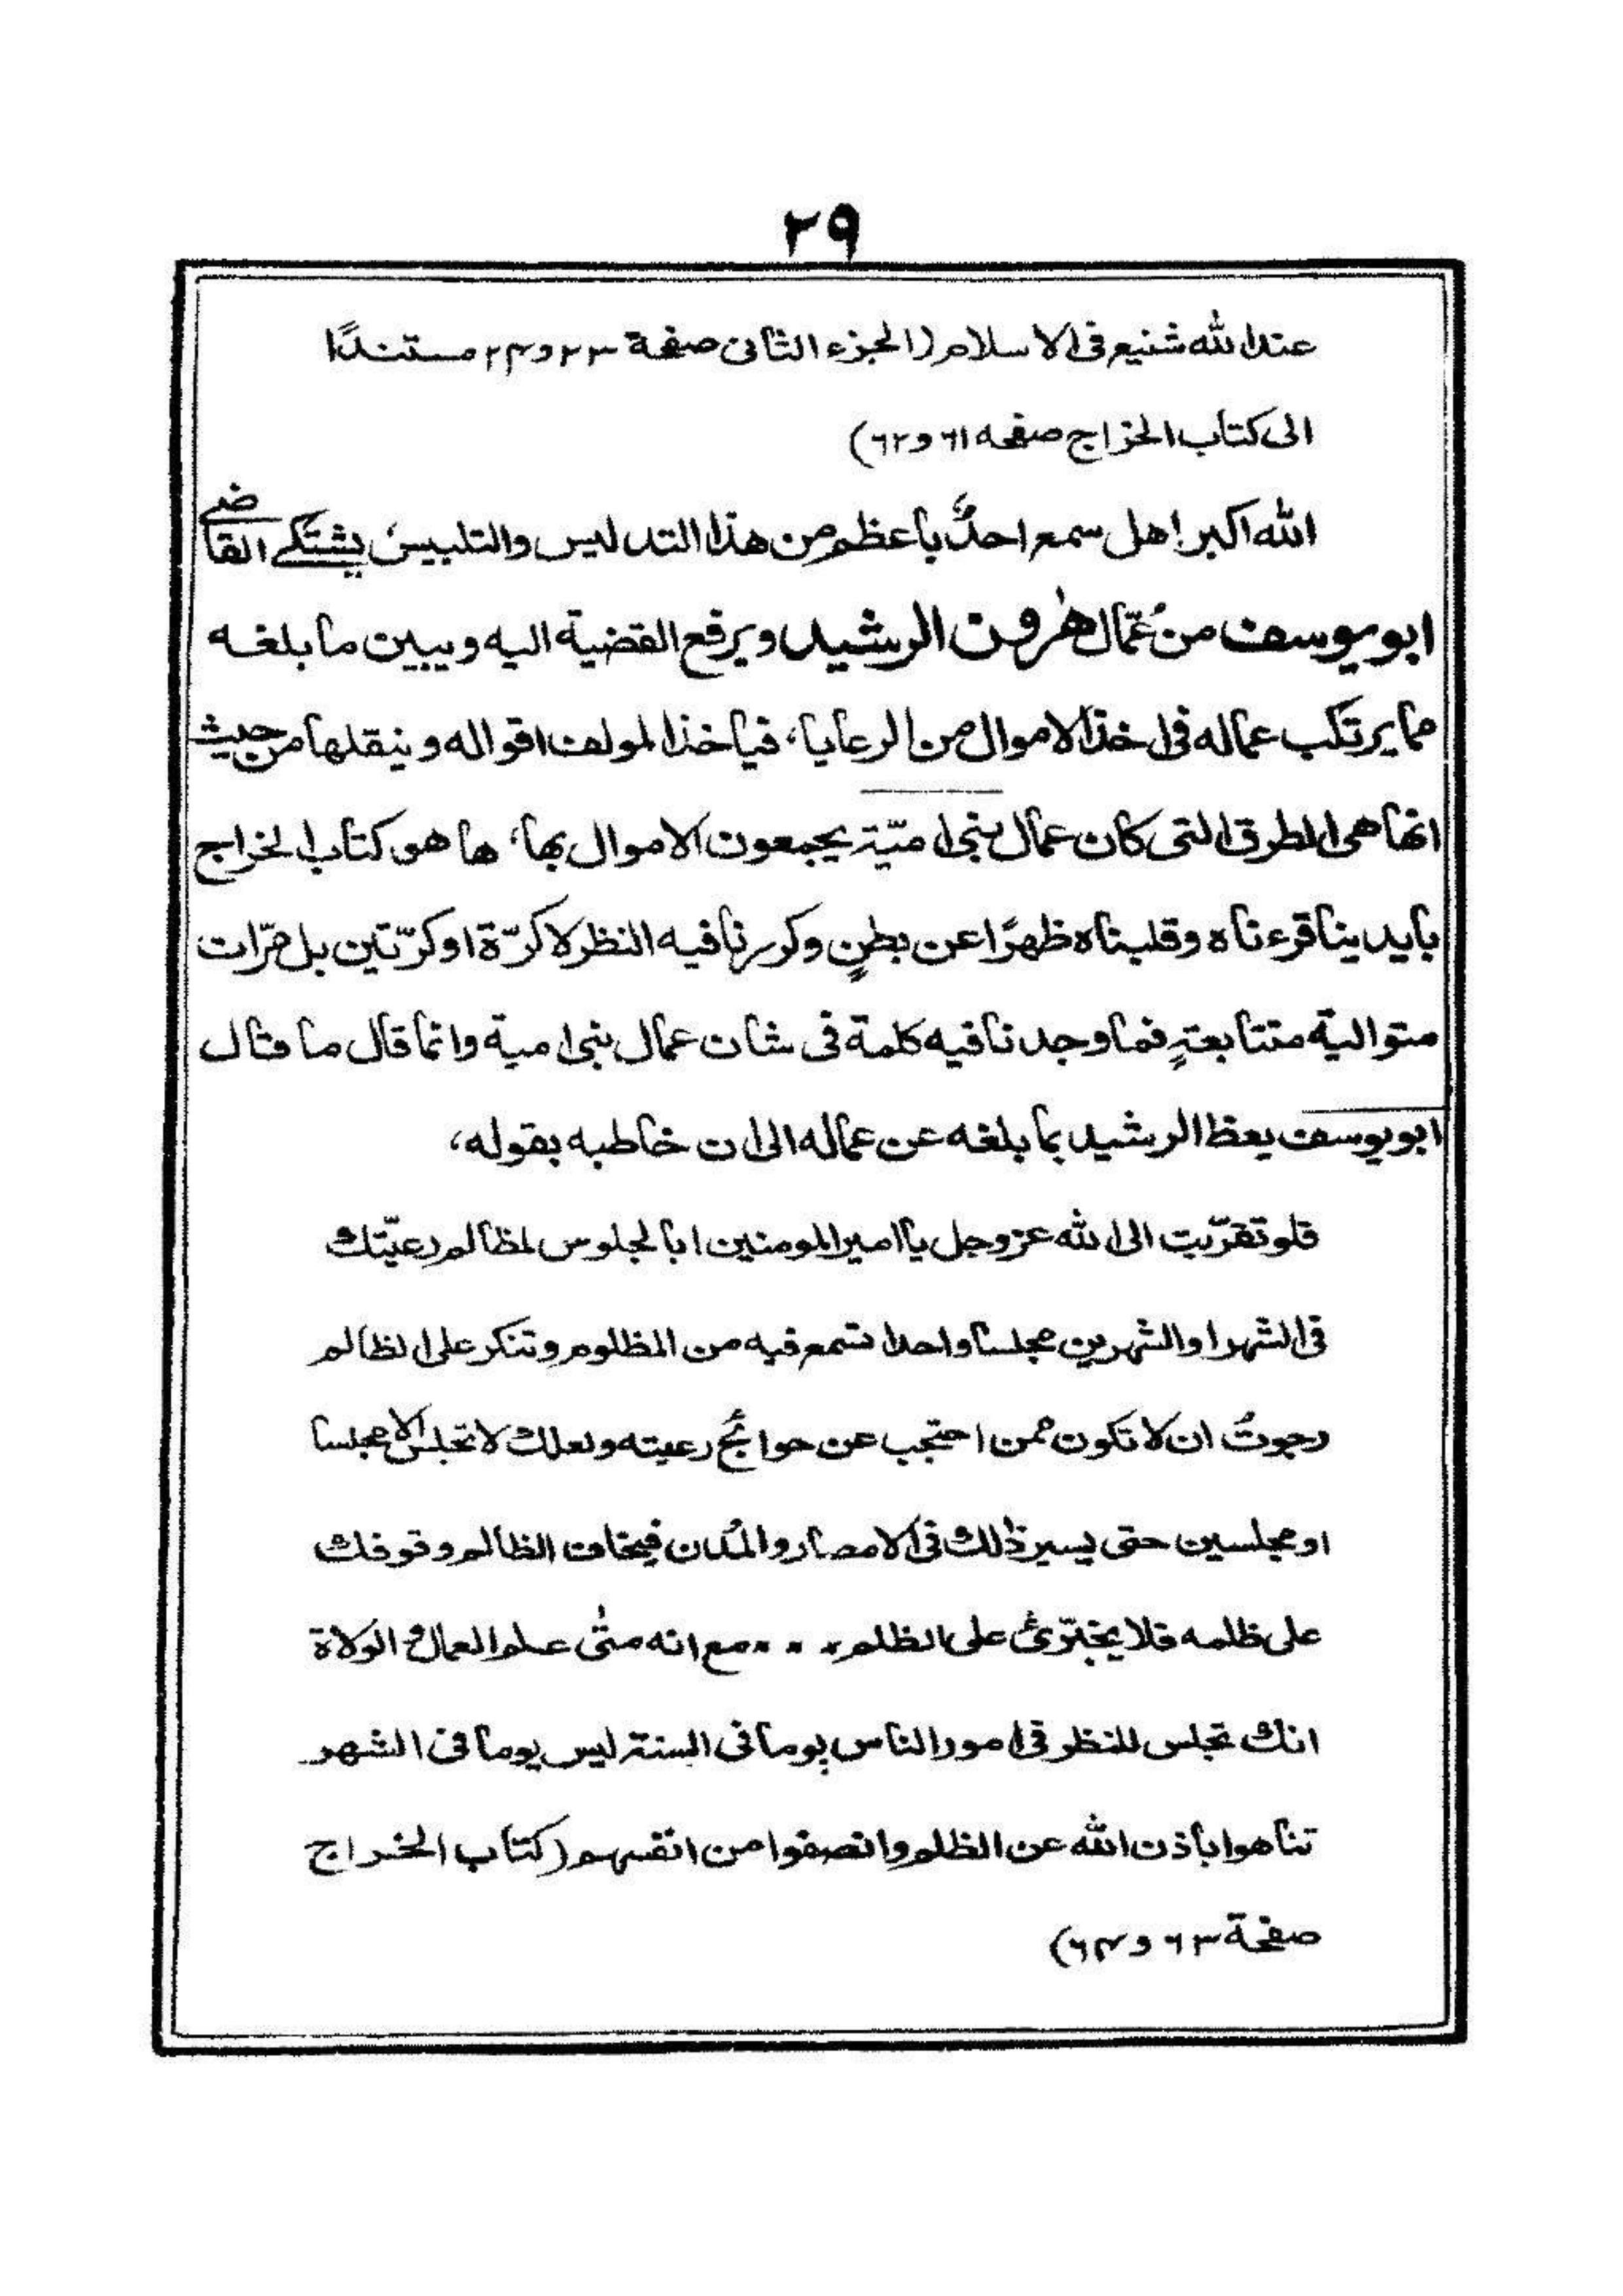 ٢٩
عند الله شنيع فى الاسلام (الجزء الثانى صفحة ٢٣ و ٢٤ مستندًا
الى كتاب الخراج صفحه ٦١ و ٦٢)
الله اكبر! هل سمع احدٌ باعظم من هذا التدليس والتلبيس، يشتكى القاضى
ابو يوسف من عُمّال هٰرون الرشيد ويرفع القضية اليه ويبين ما بلغه
مما يرتكب عماله فى اخذ الاموال من الرعايا، فياخذ المولف اقواله وينقلها من حيث
انها هى الطرق التى كان عمال بنى اميّة يجمعون الاموال بها، ها هو كتاب الخراج
بايدينا قرءناه وقلبناه ظهرًا عن بطنٍ وكررنا فيه النظر لا كرّة اوكرّتين بل مرّات
متوالية متتابعةٍ فما وجدنا فيه كلمة فى شان عمال بنى امية وانما قال ما قال
ابويوسف يعظ الرشيد بما بلغه عن عماله الى ان خاطبه بقوله،
فلو تقرّبت الى الله عز وجل يا امير المومنين ابالجلوس لمظالم رعيّتك
فى الشهر او الشهرين مجلسا واحدا تسمع فيه من المظلوم وتنكر على الظالم
رجوتُ ان لا تكون ممن احتجب عن حوائج رعيته ولعلك لا تجلس الا مجلسا
او مجلسين حتى يسير ذٰلك فى الامصار والمُدن فيخاف الظالم وقوفك
على ظلمه فلا يجترئ على الظلم ۰ ۰ ۰ ۰ مع انه متىٰ علم العمال و الولاة
انك تجلس للنظر فى امور الناس يوما فى السنة ليس يوما فى الشهر
تناهوا باذن الله عن الظلم وانصفوا من انفسهم (كتاب الخراج
صفحة ٦٣ و ٦٤)